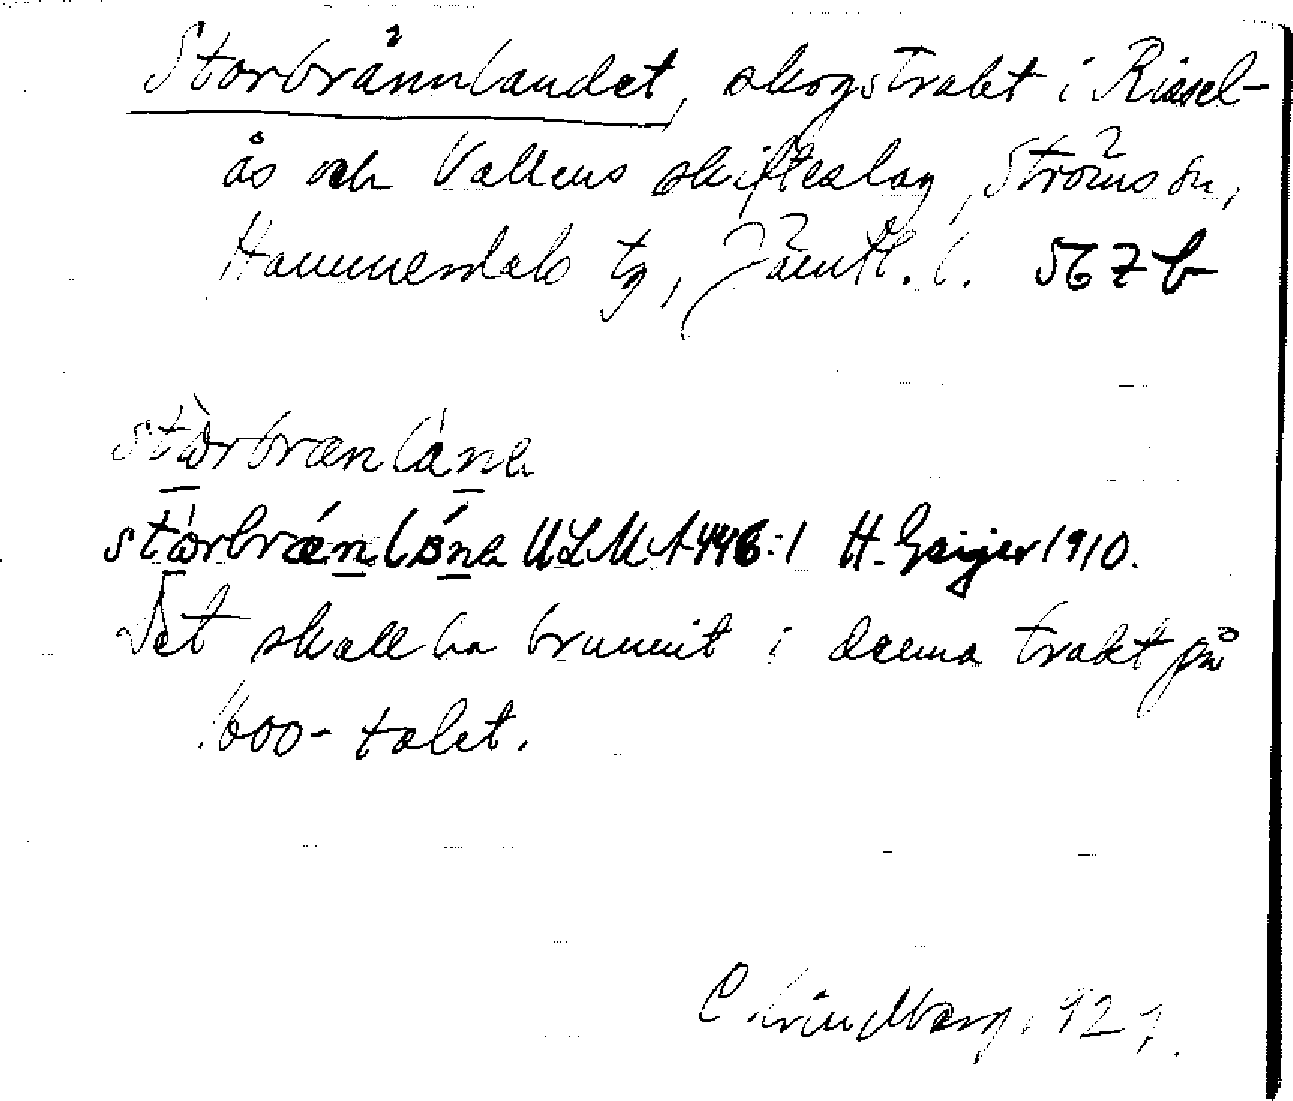 Storbrännlandet, skogstrakt i Rissel-
ås och Vallens skifteslag, Ströms sn,
Hammerdals tg, Jämtl. l. 567 b
stòrbrænlána
stòrbrǽnlóna ULMA 446:1 H. Geijer 1910.
Det skall ha brunnit i denna trakt på
1600-talet.
C Lindberg. 1927.